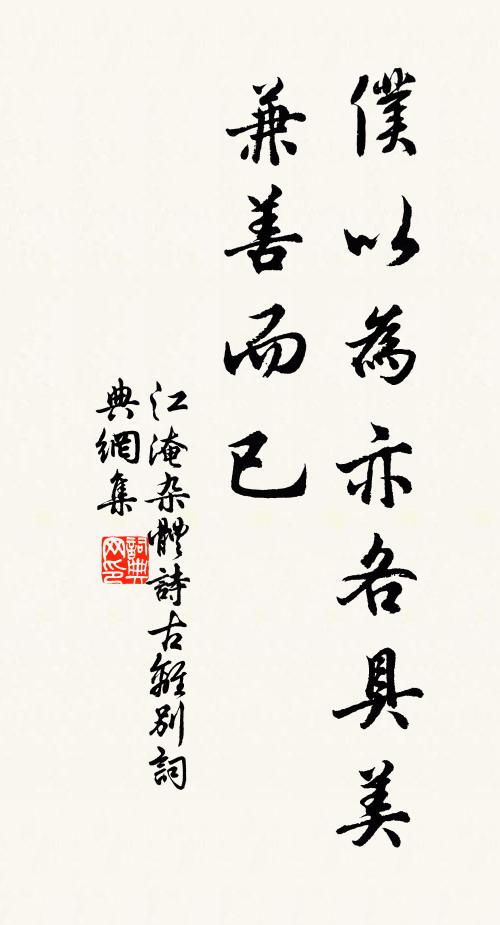 僕以為亦各具美
兼善而已
江淹杂體詩古離別詞
典網集
詞典网印